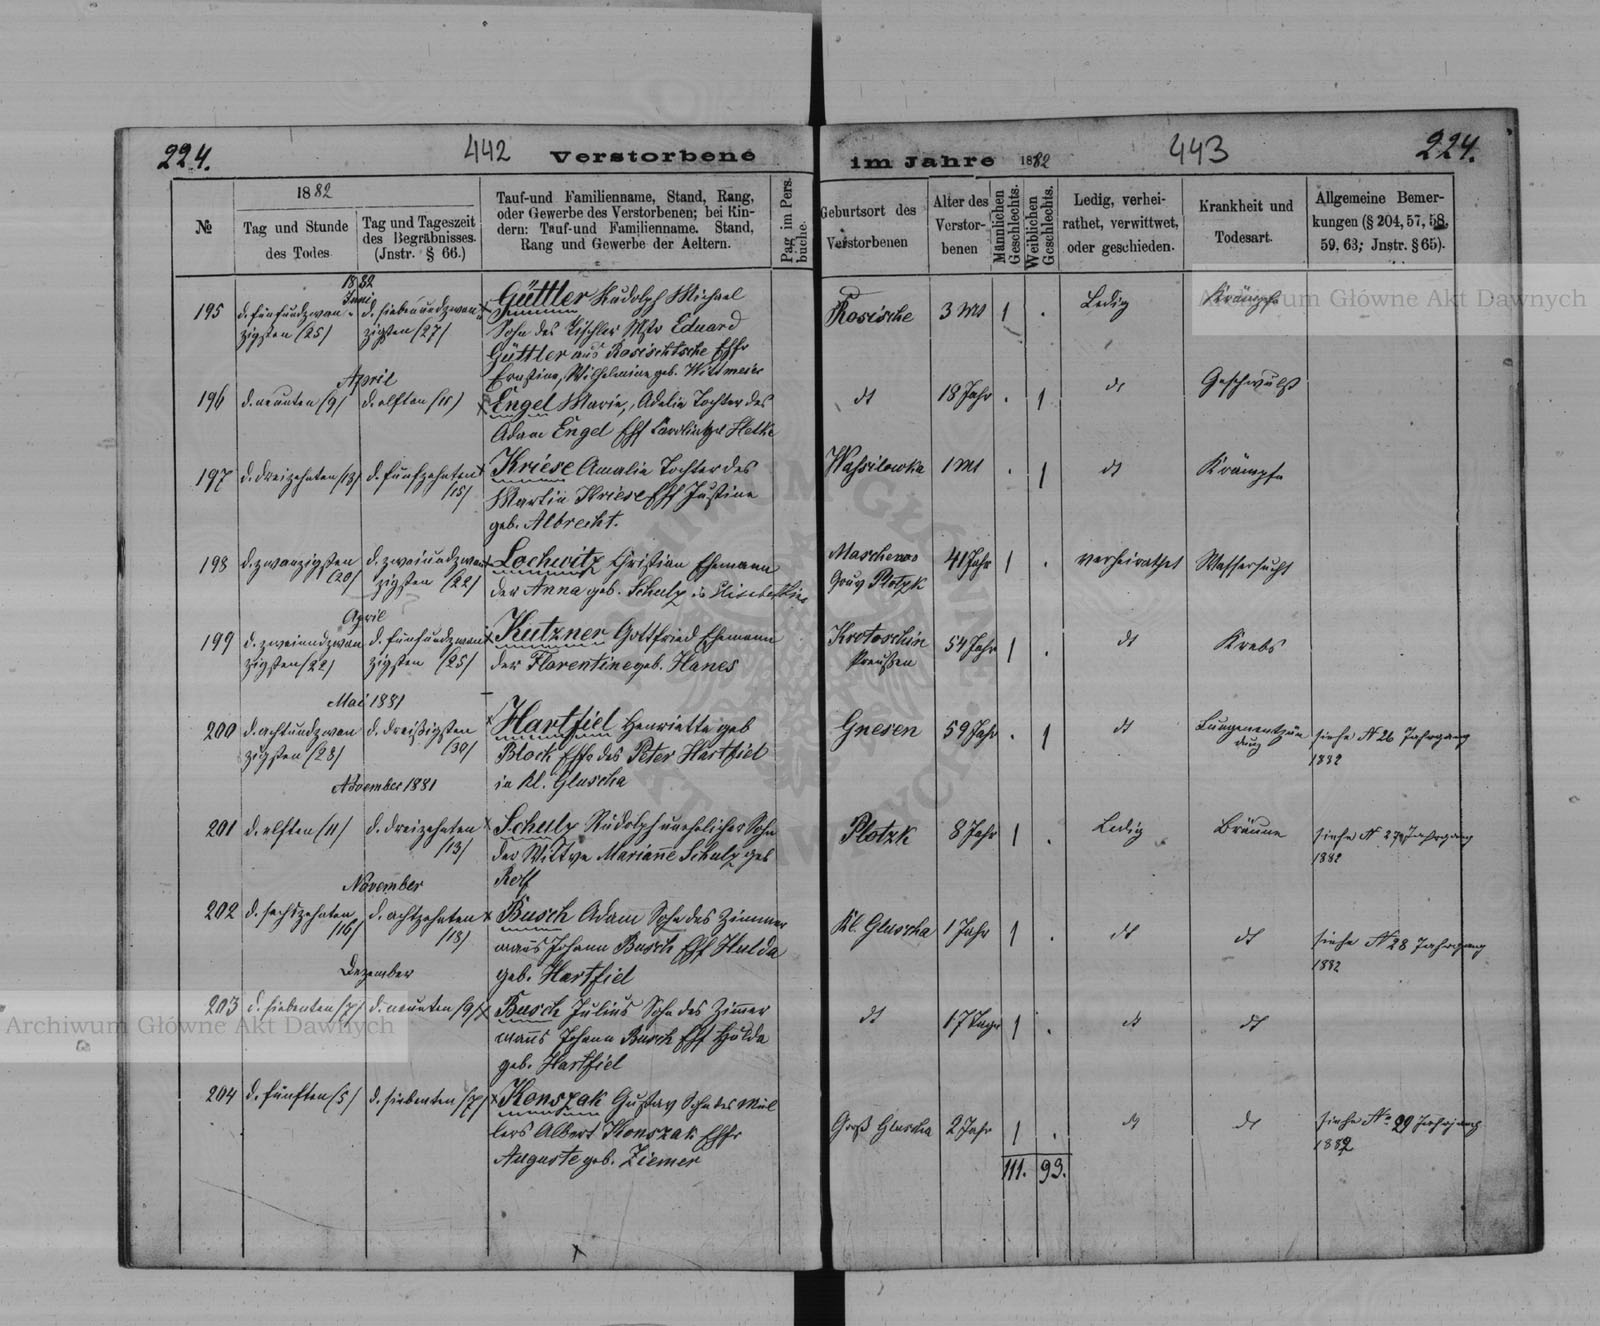 224.
442
Verstorbene
im Jahre 1882
443
224.
№
1882
Tag und Stunde
des Todes.
Tag und Tageszeit
des Begräbnisses.
(Instr. § 66.)
Tauf-und Familienname, Stand, Rang,
oder Gewerbe des Verstorbenen; bei Kin-
dern: Tauf-und Familienname. Stand,
Rang und Gewerbe der Aeltern.
Pag im Pers.
buche.
Geburtsort des
Verstorbenen
Alter des
Verstor-
benen
Männlichen
Geschlechts.
Weiblichen
Geschlechts.
Ledig, verhei-
rathet, verwittwet,
oder geschieden.
Krankheit und
Todesart.
Allgemeine Bemer-
kungen (§ 204, 57, 58,
59, 63; Jnstr. § 65).
1882
Juni
195 d. fünfundzwan- d. siebenundzwan- Güttler Rudolph Michael Rosische 3 Mt 1 . Ledig Krämpfe
zigsten /25/ zigsten /27/ Sohn des Tischler Mstr Eduard
Güttler aus Rosischtsche Ehfr
Ernstine, Wilhelmine geb. Wittmeier
April
196 d. neunten /9/ d. elften /11/ Engel Marie, Adelie Tochter des dt 18 Jahr . 1 dt Geschwulst
Adam Engel Ehf geb Hetke
197 d. dreizehnten /13/ d. fünfzehnten Kriese Amalie Tochter des Wassilowka 1 Mt . 1 dt Krämpfe
/15/ Martin Kriese Ehf Justine
geb. Albrecht.
198 d. zwanzigsten d. zweiundzwan Lochwitz Christian Ehemann 41 Jahr 1 . verheirathet Wassersucht
/20/ zigsten /22/ der Anna geb. Schulz in Gouv Plotzk
April
199 d. zweiundzwan d. fünfundzwan Kutzner Gottfried Ehemann Krotoschin 54 Jahr 1 . dt Krebs
zigsten /22/ zigsten /25/ der Florentine geb. Hanes Preußen
Mai 1881
200 d. achtundzwan d. dreißigsten Hartfiel Henriette geb Gnesen 59 Jahr . 1 dt Lungenentzün siehe № 26 Jahrgang
zigsten /28/ /30/ Block Ehfr des Peter Hartfiel dung 1882
in Kl. Gluscha
November 1881
201 d. elften /11/ d. dreizehnten Schulz Rudolph unehelicher Sohn Plotzk 8 Jahr 1 . Ledig Bräune siehe № 27 Jahrgang
/13/ der Wittwe Marianne Schulz geb 1882
Rolf
November
202 d. sechszehnten d. achtzehnten Busch Adam Sohn des Zimmer Kl. Gluscha 1 Jahr 1 . dt dt siehe № 28 Jahrgang
/16/ /18/ manns Johann Busch Ehf Hulda 1882
geb. Hartfiel
Dezember
203 d. siebenten /7/ d. neunten /9/ Busch Julius Sohn des Zimer dt 17 Tage 1 . dt dt
manns Johann Busch Ehf Hulda
geb. Hartfiel
204 d. fünften /5/ d. siebenten /7/ Konszak Gustav Sohn des Mül Groß Gluscha 2 Jahr 1 . dt dt siehe № 29 Jahrgang
lers Albert Konszak Ehfr 1882
Auguste geb. Ziemer
111. 93.
Archiwum Główne Akt Dawnych
Archiwum Główne Akt Dawnych